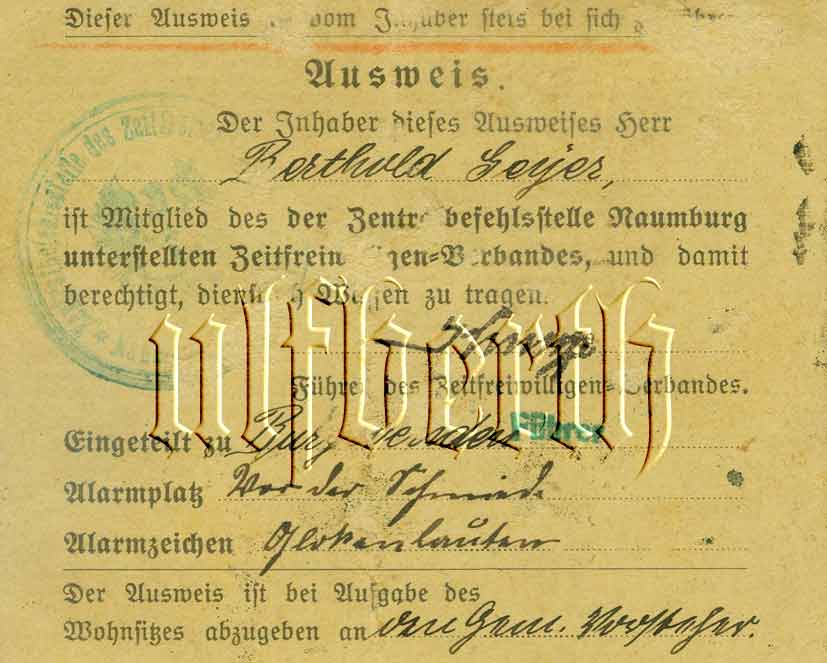 Dieser Ausweis vom Inhaber stets bei sich
Ausweis.
Der Inhaber dieses Ausweises Herr
Berthold Geijer,
ist Mitglied des der Zentr befehlsstelle Naumburg
unterstellten Zeitfreiwilligen-Verbandes, und damit
berechtigt, dienstlich Waffen zu tragen.
ulfberth
Führer des Zeitfreiwilligen-Verbandes.
Eingeteilt zu Führer
Alarmplatz Vor der Schmiede
Alarmzeichen Glokenlauten
Der Ausweis ist bei Aufgabe des
Wohnsitzes abzugeben an den Gem. Vorsteher.